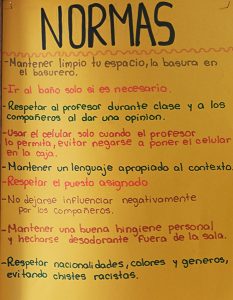 NORMAS
-Mantener limpio tu espacio, la basura en
el basurero.
-Ir al baño solo si es necesario.
-Respetar al profesor durante clase y a los
compañeros al dar una opinion.
-Usar el celular solo cuando el profesor
lo permita, evitar negarse a poner el celular
en la caja.
-Mantener un lenguaje apropiado al contexto.
-Respetar el puesto asignado
-No dejarse influenciar negativamente
por los compañeros.
-Mantener una buena hingiene personal
y hecharse desodorante "Fuera de la sala.
-Respetar nacionalidades, colores y generos,
evitando chistes racistas.